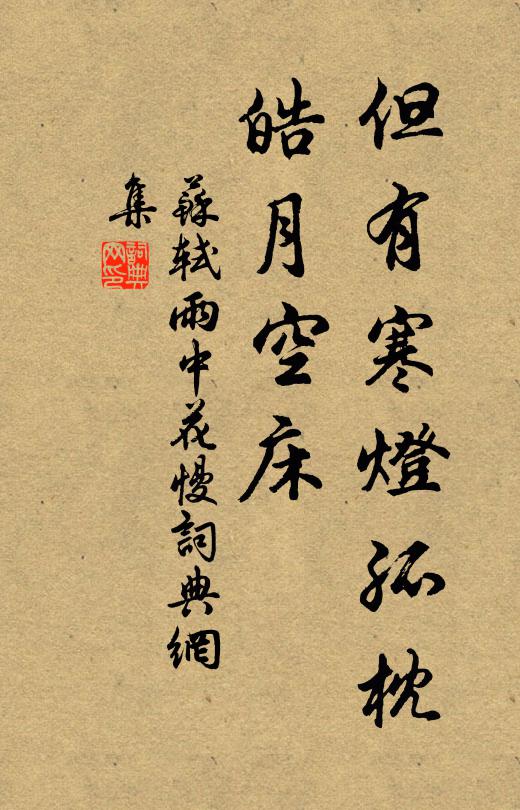 但有寒燈孤枕
皓月空床
蘇軾雨中花慢詞典網
集
詞典
网印